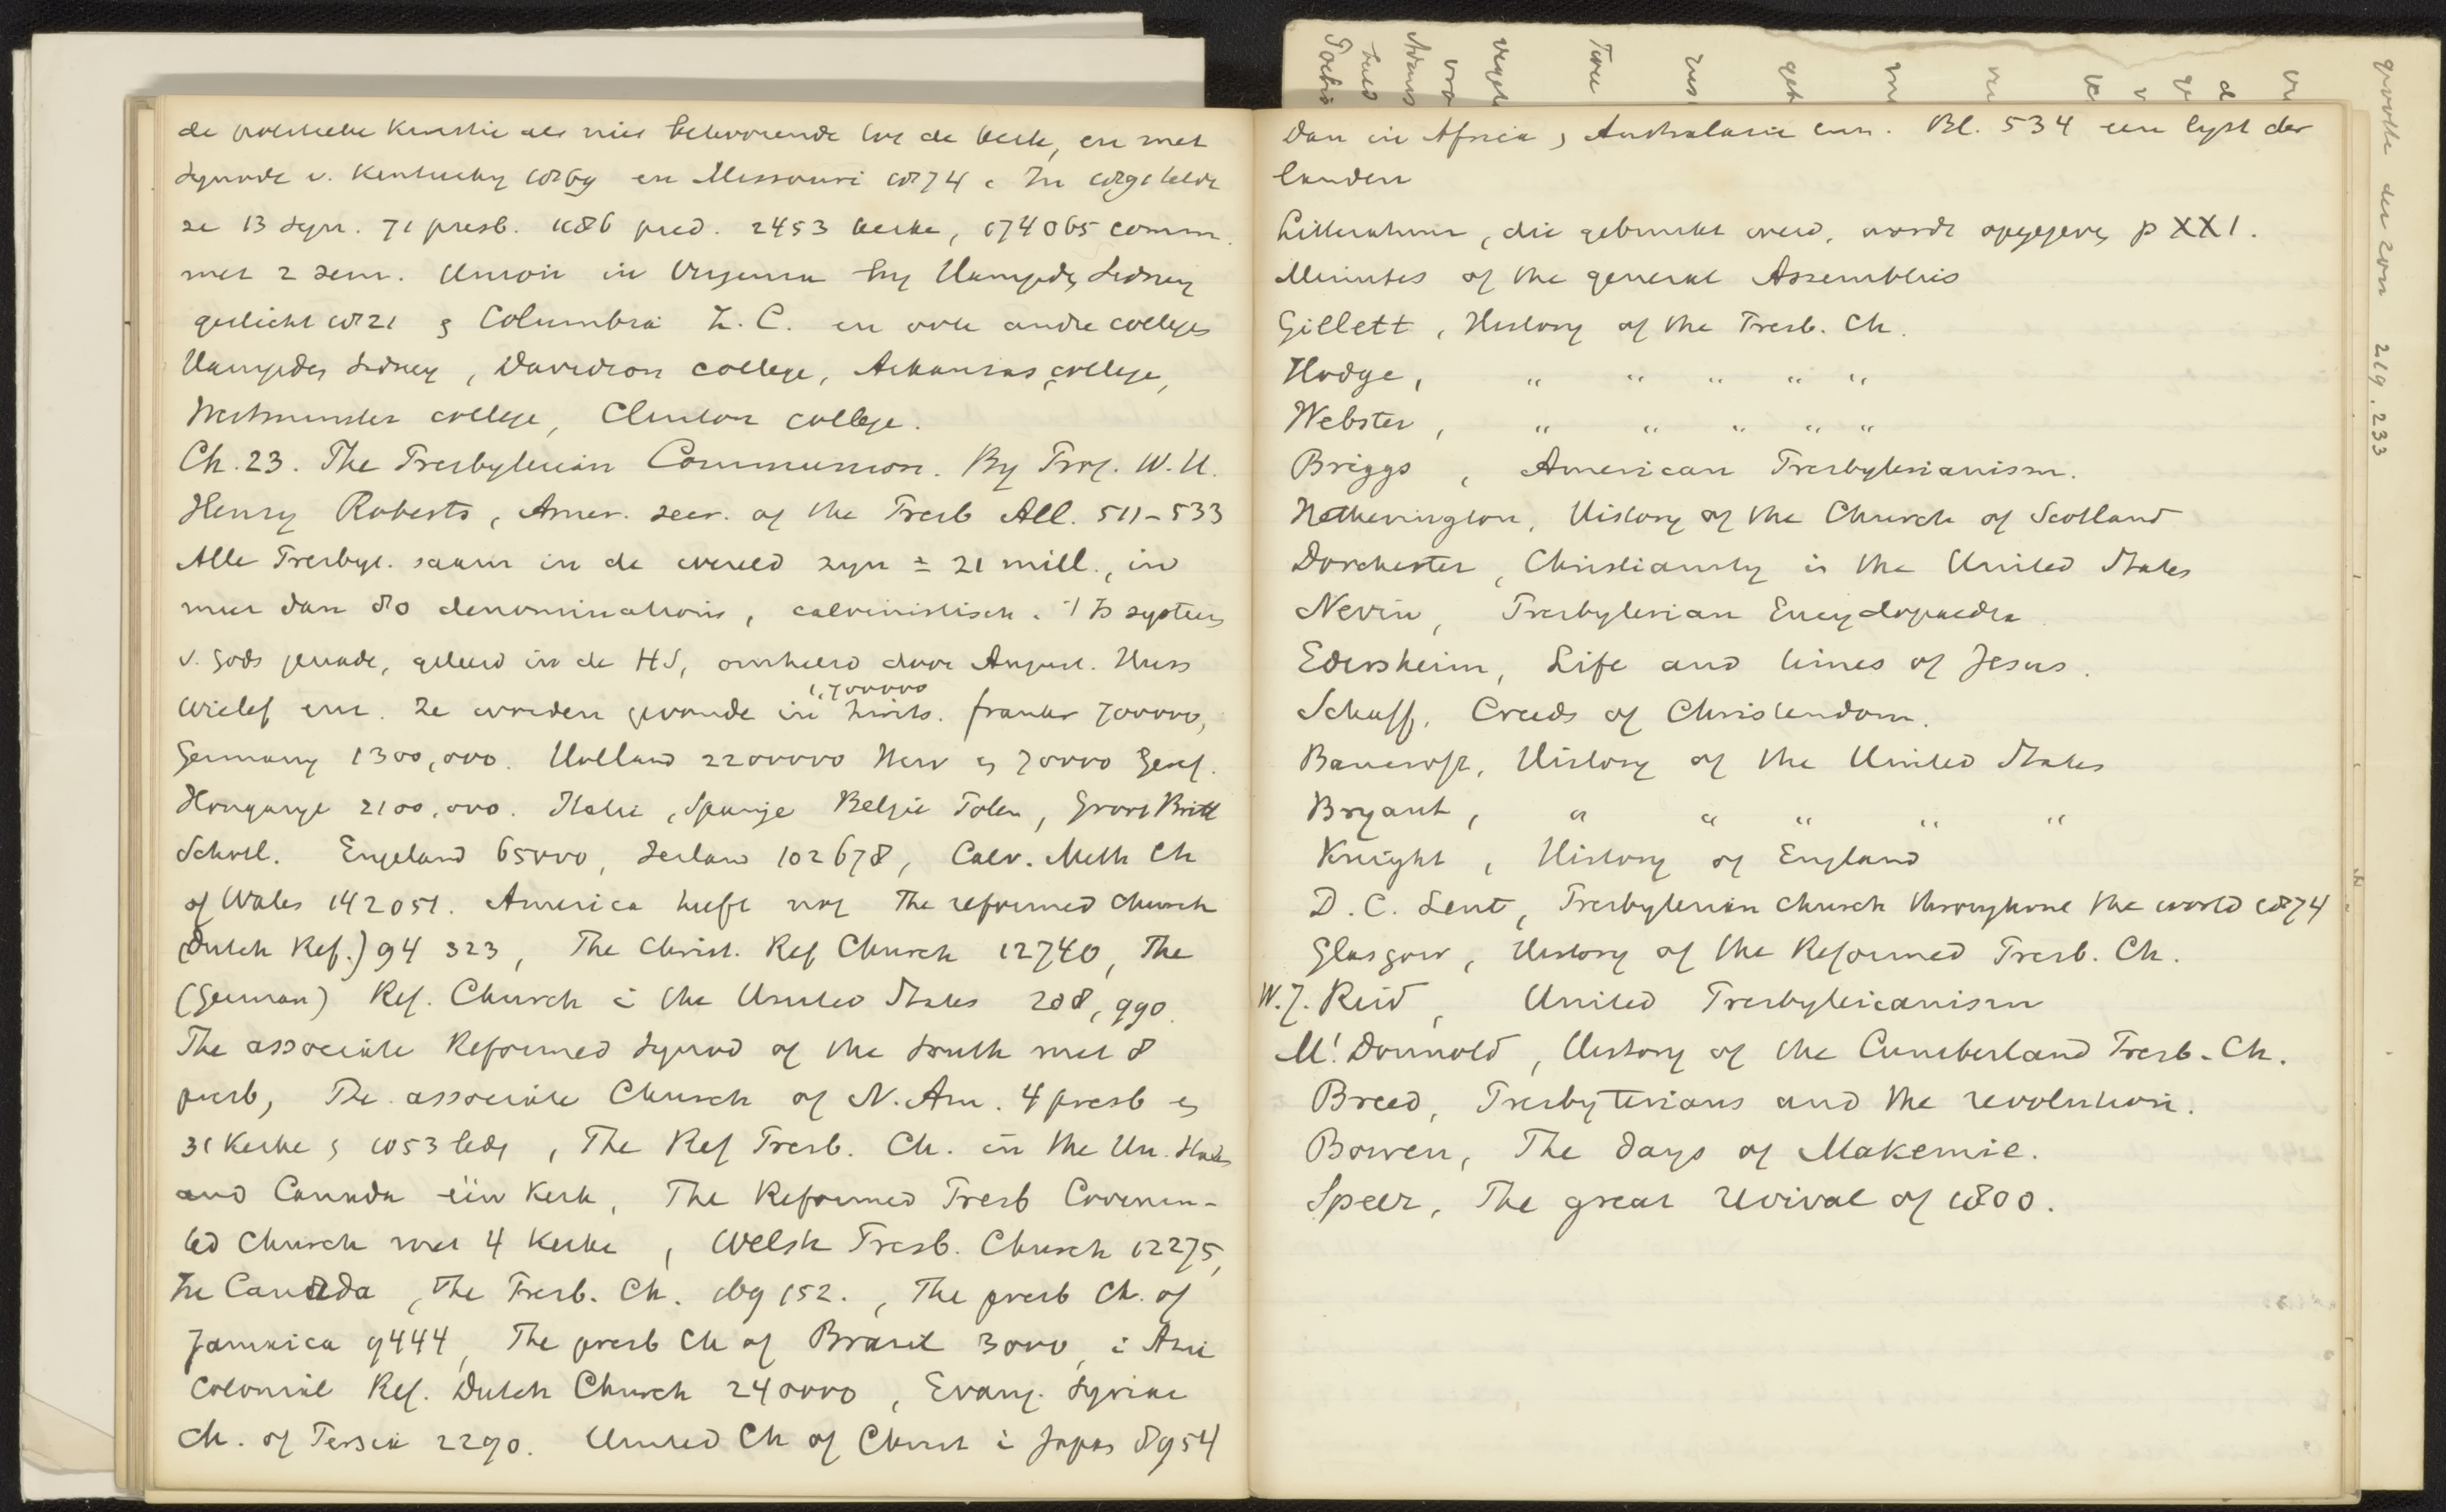 de politieke kwestie als niet behoorende tot de kerk, en met
synode v. Kentucky 1869 en Missouri 1874. In 1891 telde
ze 13 syn. 71 presb. 1186 pred. 2453 kerke, 174065 comm.
met 2 sem. Union in Virginia by Hampden Sidney
gesticht 1821 & Columbia Z. C. en ook andre colleges
Hampden Sidney, Davidson college, Arkansas college,
Westminster college, Clinton college.
Ch. 23. The Presbyterian Communion. By Prof. W. H.
Henry Roberts, Amer. secr. of the Presb All. 511-533
Alle Presbyt. saam in de wereld zyn ± 21 mill., in
meer dan 80 denominations, calvinistisch. 't Is systeem
v. Gods genade, geleerd in de HS, omhelsd door August. Huss
Wiclef enz. Ze worden gevonde in Zwits. 1,700000 frankr 700000,
Germany 1300,000. Holland 2200000 Herv en 70000 Geref.
Hongarye 2100,000. Italie, Spanje Belgie Polen, Groot Britt
Schotl. Engeland 65000, Ierland 102678, Calv. Meth Ch
of Wales 142051. America heeft nog The reformed church
(Dutch Ref.) 94 323, The Christ. Ref Church 12740, The
(German) Ref. Church i the United States 208,990.
The associate Reformed Synod of the South met 8
presb, The associate Church of N. Am. 4 presb en
31 kerke & 1053 leden, The Ref Presb. Ch. in the Un. States
and Canada één kerk, The Reformed Presb Covenan-
ted Church met 4 kerke, Welsh Presb. Church 12275,
In Canada, The Presb. Ch. 169 152., The presb Ch. of
Jamaica 9444, The presb Ch of Brazil 3000, i Azie
Colonial Ref. Dutch Church 240000, Evang. Syriac
Ch. of Persia 2290. United Ch of Christ i Japan 8954
Dan in Africa, Australasie enz. Bl. 534 een lyst der
landen
Litteratuur, die gebruikt werd, wordt opgegeven p XXI.
Minutes of the general Assemblies
Gillett, History of the Presb. Ch.
Hodge, " " " " "
Webster, " " " " "
Briggs, American Presbyterianism.
Hetherington, History of the Church of Scotland
Dorchester, Christianity i the United States
Nevin, Presbyterian Encyclopaedia
Edersheim, Life and times of Jesus.
Schaff, Creeds of Christendom.
Bancroft, History of the United States
Bryant, " " " " "
Knight, History of England
D. C. Lent, Presbyterian church throughout the world 1874
Glasgow, History of the Reformed Presb. Ch.
W. J. Reid, United Presbyterianism
Mc Donnold, History of the Cumberland Presb. Ch.
Breed, Presbyterians and the revolution.
Bowen, The days of Makemie.
Speer, The great revival of 1800.
219. 233